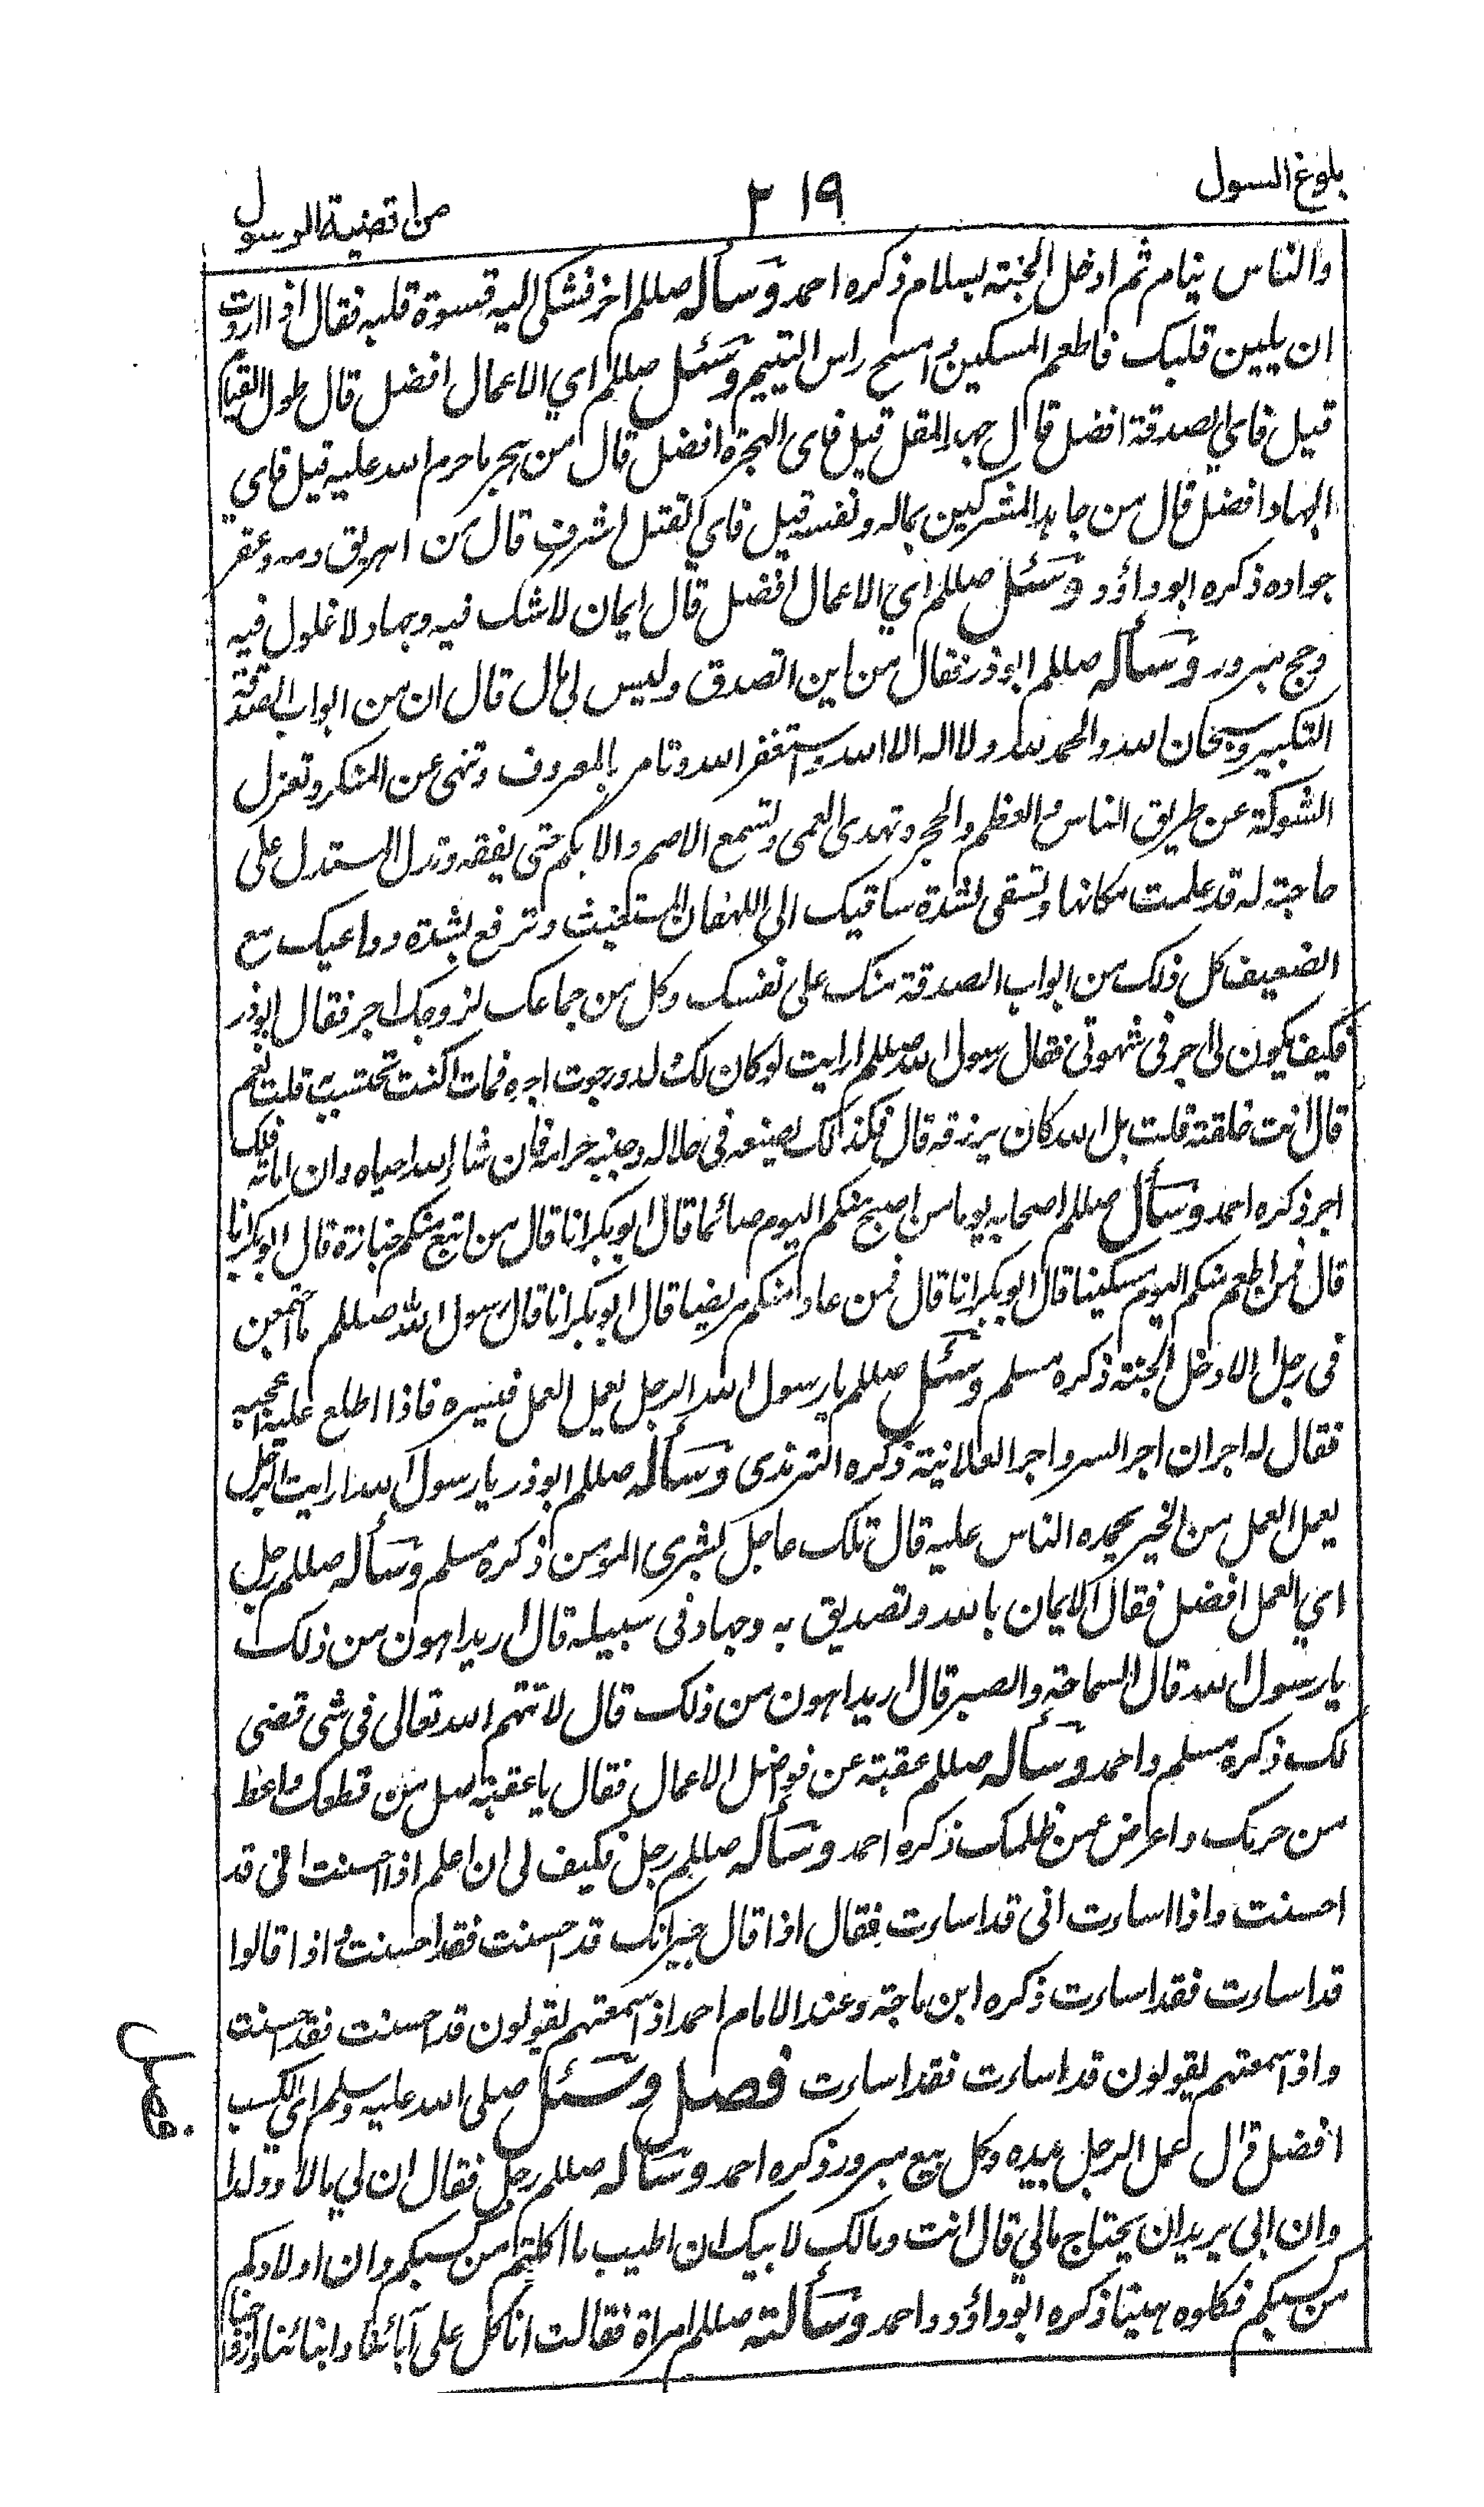 بلوغ السول ٢١٩ من اقضية الرسول
والناس نيام ثم ادخل الجنة بسلام ذكره احمد وسأله صللم اخر فشكى اليه قسوة قلبه فقال اذا اردت
ان يلين قلبك فاطعم المسكين وامسح راس اليتيم وسئل صللم اي الاعمال افضل قال طول القيام
قيل فاي الصدقة افضل قال جهد المقل قيل فاى الهجرة افضل قال من هجر ما حرم الله عليه قيل فاي
الجهاد افضل قال من جاهد المشركين بماله ونفسه قيل فاي القتل اشرف قال من اهريق دمه وعقر
جواده ذكره ابو داؤد وسئل صللم اي الاعمال افضل قال ايمان لا شك فيه وجهاد لا غلول فيه
وحج مبرور وسأله صللم ابو ذر فقال من اين اتصدق وليس لى مال قال ان من ابواب الصدقة
التكبير وسبحان الله والحمد لله ولا اله الا الله واستغفر الله وتامر بالمعروف وتنهى عن المنكر وتعزل
الشوكة عن طريق الناس والعظم والحجر وتهدى العمى وتسمع الاصم والابكم حتى يفقه وتدل المستدل على
حاجة له قد علمت مكانها وتسقى بشدة ساقيك الى اللهفان المستغيث وترفع بشدة ذراعيك مع
الضعيف كل ذلك من ابواب الصدقة منك على نفسك وكل من جماعك لزوجك اجر فقال ابو ذر
فكيف يكون لى اجر فى شهوتى فقال رسول الله صللم ارايت لو كان لك ولد ورجوت اجره فمات اكنت تحتسبه قلت نعم
قال انت خلقته قلت بل الله كان يرزقه قال فكذلك تضعه فى حلاله وجنبه حرامه فان شاء الله احياه وان اماته فلك
اجر ذكره احمد وسأل صللم اصحابه يوما من اصبح منكم اليوم صائما قال ابو بكر انا قال من اتبع منكم جنازة قال ابو بكر انا
قال فمن اطعم منكم اليوم مسكينا قال ابو بكر انا قال فمن عاد منكم مريضا قال ابو بكر انا قال رسول الله صللم ما اجتمعن
فى رجل الا دخل الجنة ذكره مسلم وسئل صللم يا رسول الله الرجل يعمل العمل فيسره فاذا اطلع عليه اعجبه
فقال له اجران اجر السر واجر العلانية ذكره الترمذى وسأله صللم ابو ذر يا رسول الله ارايت الرجل
يعمل العمل من الخير يحمده الناس عليه قال تلك عاجل بشرى المومن ذكره مسلم وسأله صللم رجل
اي العمل افضل فقال الايمان بالله وتصديق به وجهاد فى سبيله قال اريد اهون من ذلك
يا رسول الله قال السماحة والصبر قال اريد اهون من ذلك قال لا تتهم الله تعالى فى شى قضى
لك ذكره مسلم واحمد وسأله صللم عقبة عن فواضل الاعمال فقال يا عقبة صل من قطعك واعط
من حرمك واعرض عمن ظلمك ذكره احمد وسأله صللم رجل فكيف لى ان اعلم اذا احسنت انى قد
احسنت واذا اساءت انى قد اساءت فقال اذا قال جيرانك قد احسنت فقد احسنت واذا قالوا
قد اساءت فقد اساءت ذكره ابن ماجة وعند الامام احمد اذا سمعتهم يقولون قد احسنت فقد احسنت
واذا سمعتهم يقولون قد اساءت فقد اساءت فصل وسئل صلى الله عليه وسلم اي الكسب
افضل قال عمل الرجل بيده وكل بيع مبرور ذكره احمد وسأله صللم رجل فقال ان لي مالا وولدا
وان ابى يريد ان يحتاج مالي قال انت ومالك لابيك ان اطيب ما اكلتم من كسبكم وان اولادكم
من كسبكم فكلوه هنيئا ذكره ابو داؤد واحمد وسألته صللم امراة فقالت انا كل على آبائنا وابنائنا وازواجنا